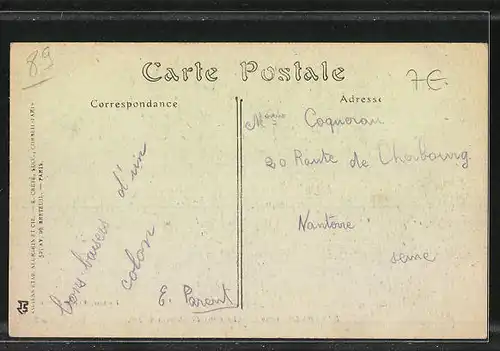 89
Carte Postale
7€
Correspondance
Adresse
bons baisers d'un
colon
E. Parent
Mme Coquerau
20 Route de Cherbourg
Nanterre
Seine